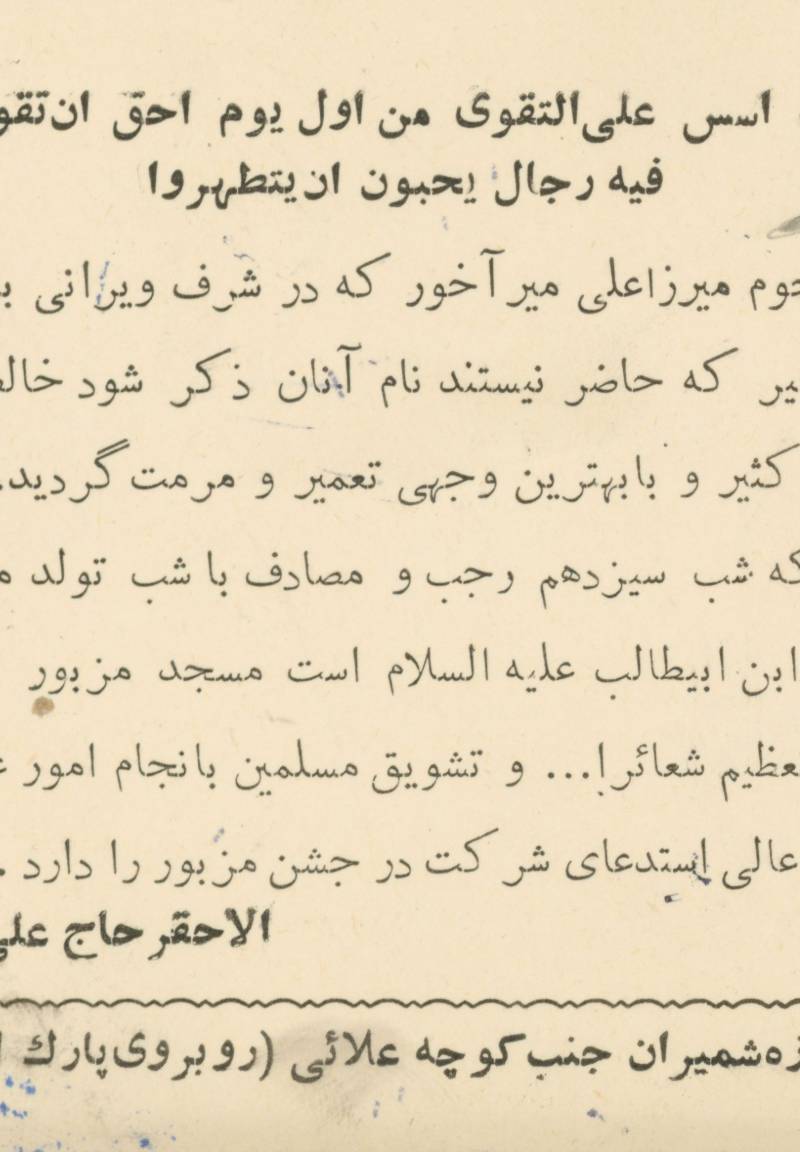 اسس علی‌التقوی من اول یوم احق ان‌تقو
فیه رجال یحبون ان‌یتطهروا
میرزاعلی میر آخور که در شرف ویرانی
که حاضر نیستند نام آنان ذکر شود
کثیر و بابهترین وجهی تعمیر و مرمت گردید.
که شب سیزدهم رجب و مصادف با شب تولد
ابن ابیطالب علیه السلام است مسجد مزبور
شعائر ا... و تشویق مسلمین بانجام امور
عالی استدعای شرکت در جشن مزبور را دارد .
الاحقر حاج علی
شمیران جنب‌کوچه علائی (روبروی‌پارك